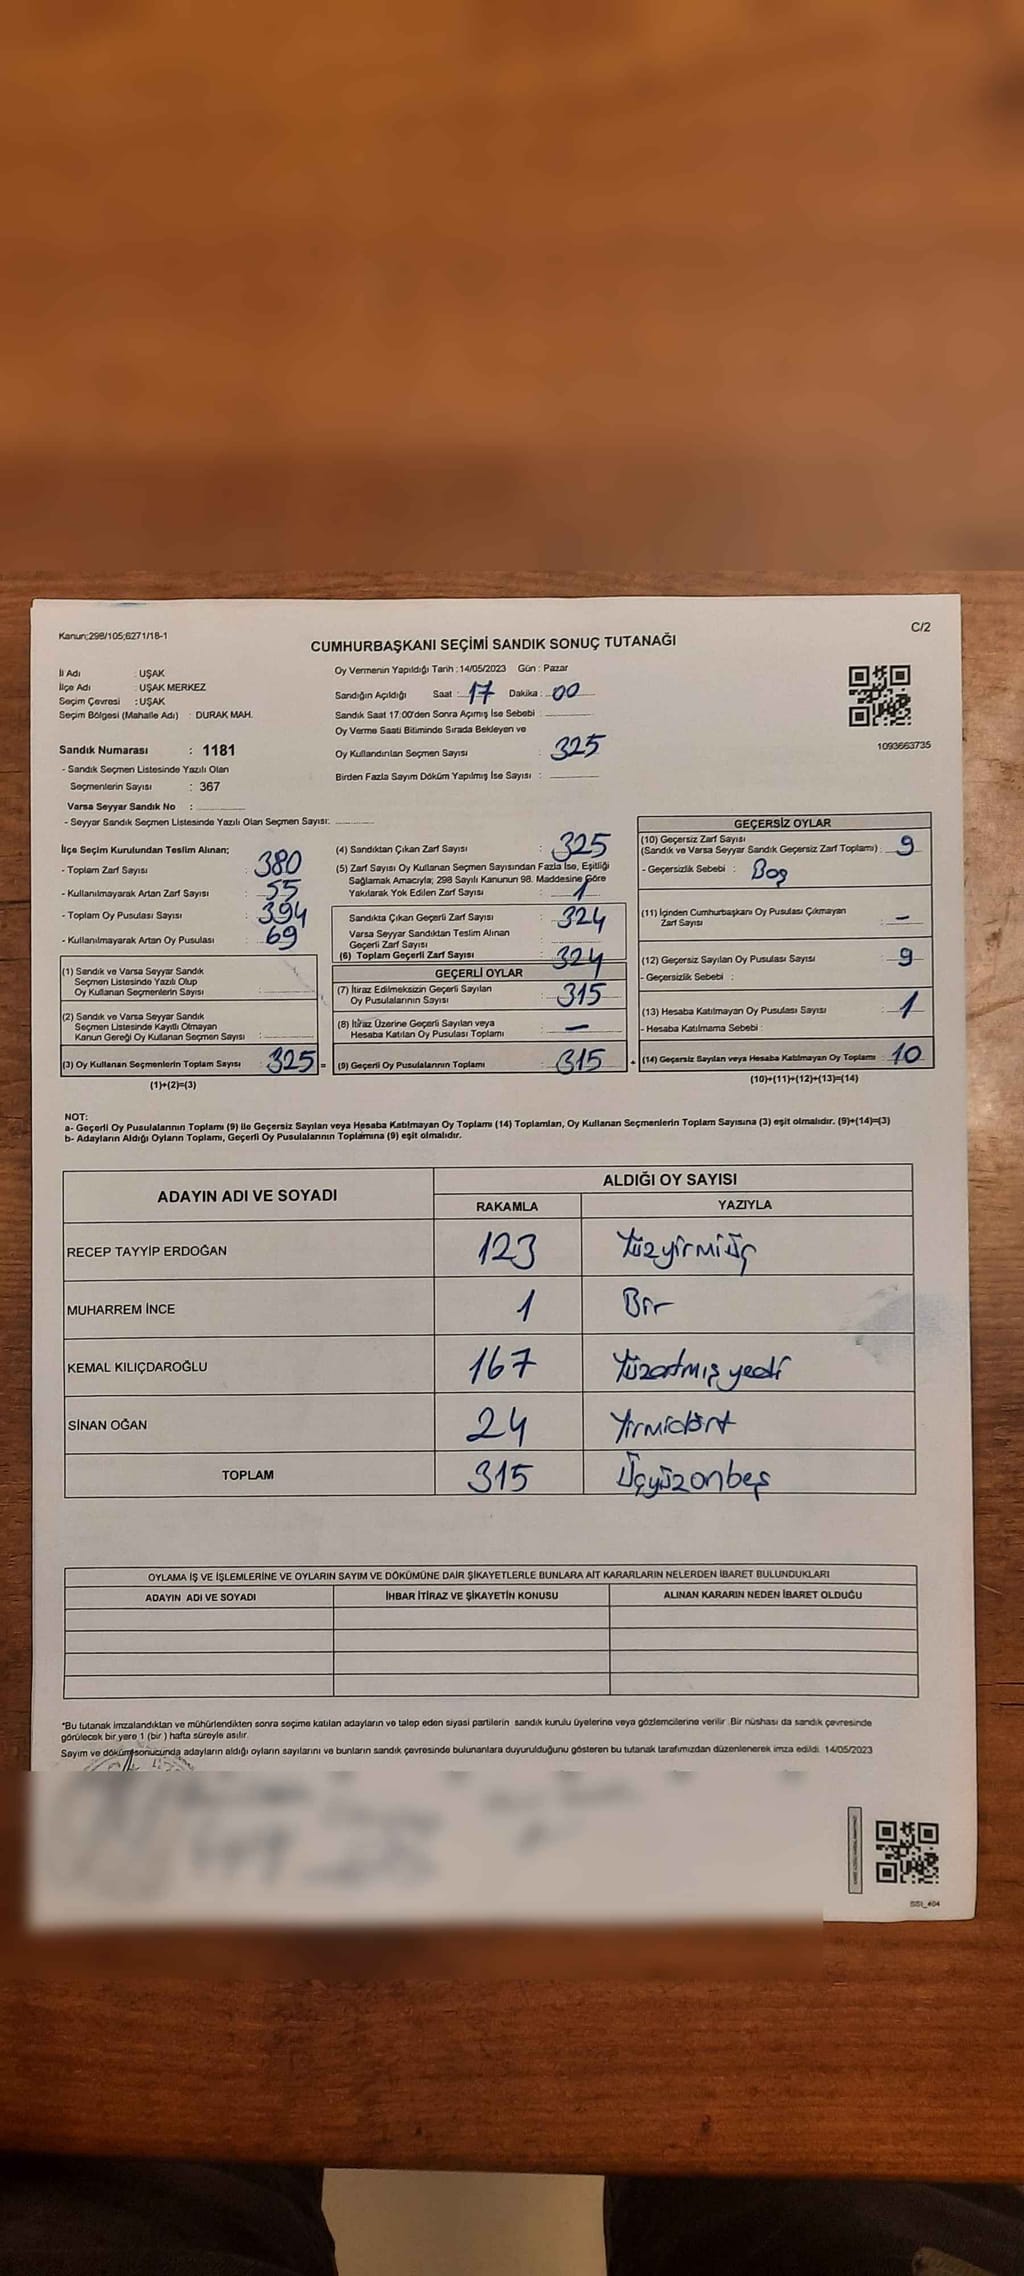 Kanun;298/105;6271/18-1
C/2
CUMHURBAŞKANI SEÇİMİ SANDIK SONUÇ TUTANAĞI
İl Adı : UŞAK
İlçe Adı : UŞAK MERKEZ
Seçim Çevresi : UŞAK
Seçim Bölgesi (Mahalle Adı) : DURAK MAH.
Sandık Numarası : 1181
- Sandık Seçmen Listesinde Yazılı Olan
Seçmenlerin Sayısı : 367
Varsa Seyyar Sandık No :
- Seyyar Sandık Seçmen Listesinde Yazılı Olan Seçmen Sayısı:
Oy Vermenin Yapıldığı Tarih : 14/05/2023 Gün : Pazar
Sandığın Açıldığı Saat : 17 Dakika : 00
Sandık Saat 17:00'den Sonra Açımış İse Sebebi :
Oy Verme Saati Bitiminde Sırada Bekleyen ve
Oy Kullandırılan Seçmen Sayısı : 325
Birden Fazla Sayım Döküm Yapılmış İse Sayısı :
1093663735
İlçe Seçim Kurulundan Teslim Alınan;
- Toplam Zarf Sayısı : 380
- Kullanılmayarak Artan Zarf Sayısı : 55
- Toplam Oy Pusulası Sayısı : 394
- Kullanılmayarak Artan Oy Pusulası : 69
(1) Sandık ve Varsa Seyyar Sandık
Seçmen Listesinde Yazılı Olup
Oy Kullanan Seçmenlerin Sayısı :
(2) Sandık ve Varsa Seyyar Sandık
Seçmen Listesinde Kayıtlı Olmayan
Kanun Gereği Oy Kullanan Seçmen Sayısı :
(3) Oy Kullanan Seçmenlerin Toplam Sayısı : 325 =
(1)+(2)=(3)
(4) Sandıktan Çıkan Zarf Sayısı : 325
(5) Zarf Sayısı Oy Kullanan Seçmen Sayısından Fazla İse, Eşitliği
Sağlamak Amacıyla; 298 Sayılı Kanunun 98. Maddesine Göre
Yakılarak Yok Edilen Zarf Sayısı : 1
Sandıkta Çıkan Geçerli Zarf Sayısı : 324
Varsa Seyyar Sandıktan Teslim Alınan
Geçerli Zarf Sayısı :
(6) Toplam Geçerli Zarf Sayısı : 324
GEÇERLİ OYLAR
(7) İtiraz Edilmeksizin Geçerli Sayılan
Oy Pusulalarının Sayısı : 315
(8) İtiraz Üzerine Geçerli Sayılan veya
Hesaba Katılan Oy Pusulası Toplamı : -
(9) Geçerli Oy Pusulalarının Toplamı : 315 +
GEÇERSİZ OYLAR
(10) Geçersiz Zarf Sayısı
(Sandık ve Varsa Seyyar Sandık Geçersiz Zarf Toplamı) : 9
- Geçersizlik Sebebi : Boş
(11) İçinden Cumhurbaşkanı Oy Pusulası Çıkmayan
Zarf Sayısı : -
(12) Geçersiz Sayılan Oy Pusulası Sayısı : 9
- Geçersizlik Sebebi :
(13) Hesaba Katılmayan Oy Pusulası Sayısı : 1
- Hesaba Katılmama Sebebi :
(14) Geçersiz Sayılan veya Hesaba Katılmayan Oy Toplamı : 10
(10)+(11)+(12)+(13)=(14)
NOT:
a- Geçerli Oy Pusulalarının Toplamı (9) ile Geçersiz Sayılan veya Hesaba Katılmayan Oy Toplamı (14) Toplamları, Oy Kullanan Seçmenlerin Toplam Sayısına (3) eşit olmalıdır. (9)+(14)=(3)
b- Adayların Aldığı Oyların Toplamı, Geçerli Oy Pusulalarının Toplamına (9) eşit olmalıdır.
ADAYIN ADI VE SOYADI ALDIĞI OY SAYISI
RAKAMLA YAZIYLA
RECEP TAYYİP ERDOĞAN 123 Yüzyirmiüç
MUHARREM İNCE 1 Bir
KEMAL KILIÇDAROĞLU 167 Yüzatmış yedi
SİNAN OĞAN 24 Yirmidört
TOPLAM 315 Üçyüzonbeş
OYLAMA İŞ VE İŞLEMLERİNE VE OYLARIN SAYIM VE DÖKÜMÜNE DAİR ŞİKAYETLERLE BUNLARA AİT KARARLARIN NELERDEN İBARET BULUNDUKLARI
ADAYIN ADI VE SOYADI İHBAR İTİRAZ VE ŞİKAYETİN KONUSU ALINAN KARARIN NEDEN İBARET OLDUĞU
*Bu tutanak imzalandıktan ve mühürlendikten sonra seçime katılan adayların ve talep eden siyasi partilerin sandık kurulu üyelerine veya gözlemcilerine verilir. Bir nüshası da sandık çevresinde
görülecek bir yere 1 (bir ) hafta süreyle asılır.
Sayım ve döküm sonucunda adayların aldığı oyların sayılarını ve bunların sandık çevresinde bulunanlara duyurulduğunu gösteren bu tutanak tarafımızdan düzenlenerek imza edildi. 14/05/2023
SSI_404